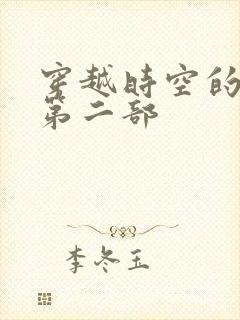 穿越時空的
第二部
李冬玉